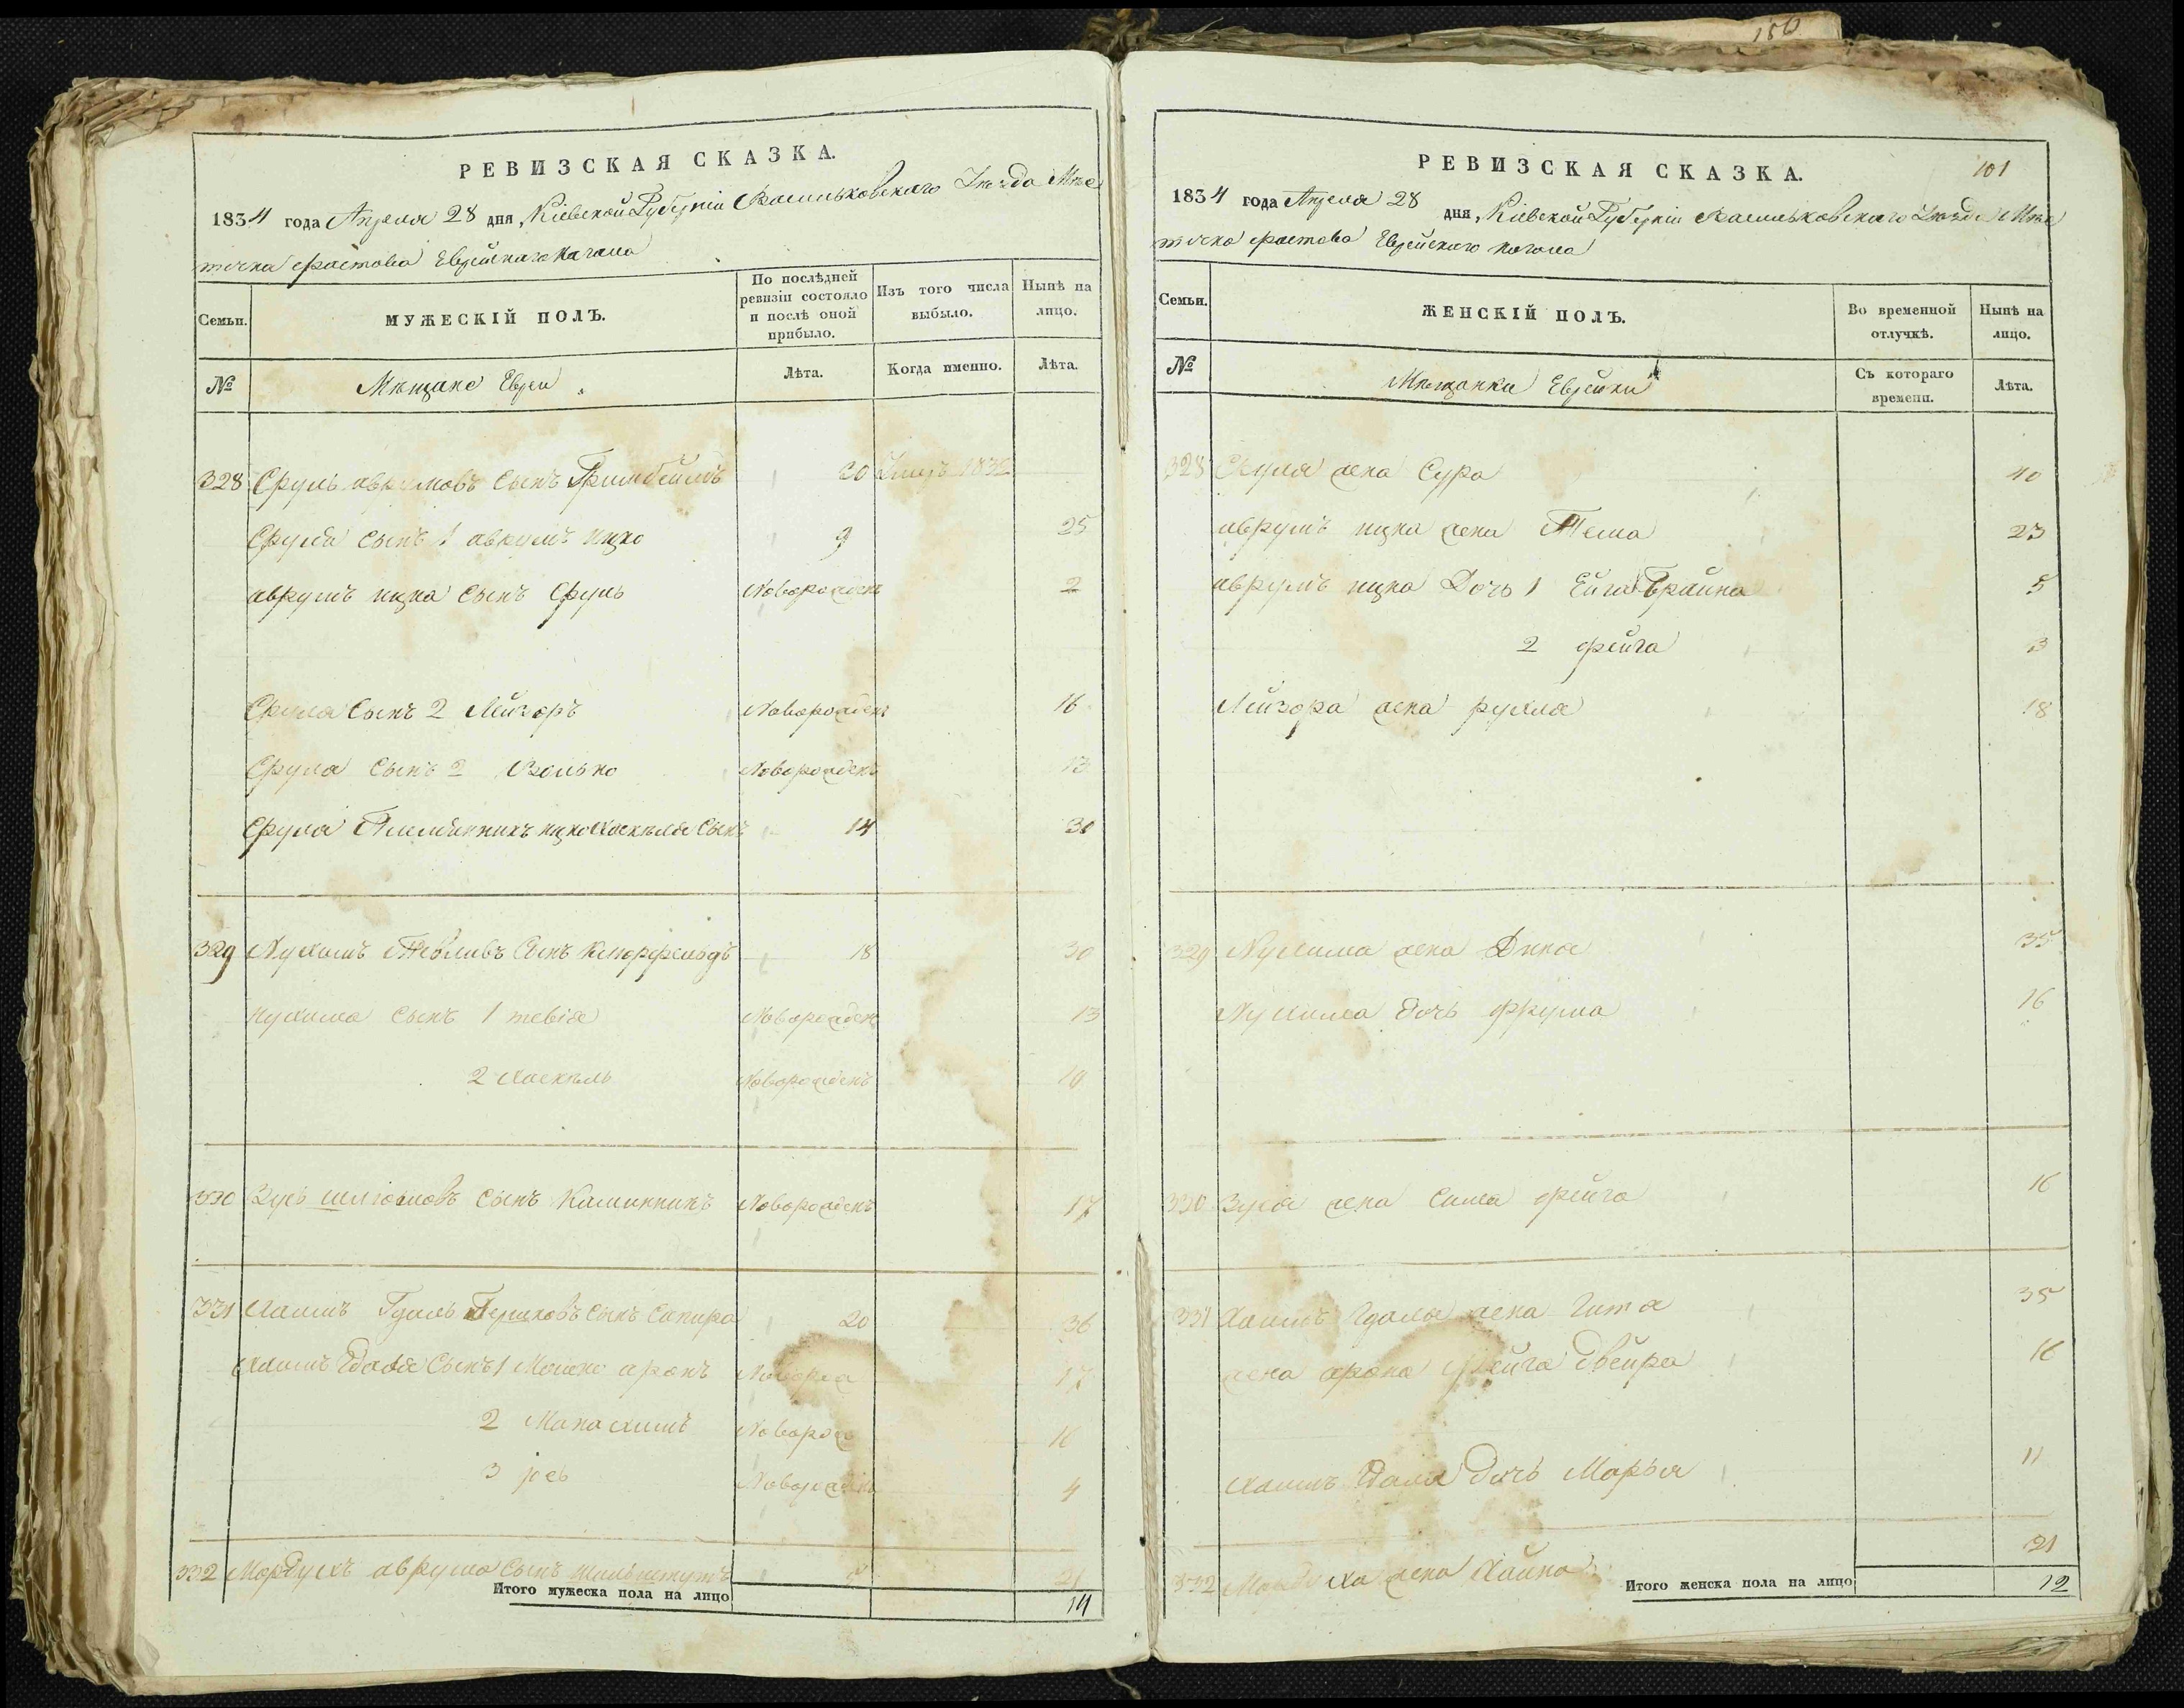 186
РЕВИЗСКАЯ СКАЗКА.
1834 года Апреля 28 дня, Кіевской Губерніи Васильковскаго Уѣзда Мѣс
течка Фастова Еврейскаго Кагала
Семьи.
МУЖЕСКІЙ ПОЛЪ.
По послѣдней ревизіи состояло и послѣ оной прибыло.
Изъ того числа выбыло.
Нынѣ на лицо.
№
Мѣщане Евреи
Лѣта.
Когда именно.
Лѣта.
328 Сруль аврумовъ сынъ 30 Умеръ 1832
Сруля сынъ 1 аврумъ ицко 9 25
аврумъ ицка сынъ Сруль Новорожденъ 2
Сруля сынъ 2 Лейзоръ Новорожденъ 16
Сруля сынъ 2 Волько Новорожденъ 13
Сруля Племянникъ ицко Хаскеля сынъ 14 31
329 Нухимъ сынъ 18 30
Нухима сынъ 1 тевія Новорожден 13
2 хаскель Новорожденъ 10
330 Зусь шліомовъ сынъ Каминникъ Новорожденъ 17
331 Хаимъ Гдаль Гершковъ сынъ Сапира 20 36
Хаимъ Гдаля сынъ 1 Мошко аронъ Новорож 17
2 Манахимъ Новорож 16
3 Новорожден 4
332 Мордухъ аврума сынъ 21
Итого мужеска пола на лицо 14
101
РЕВИЗСКАЯ СКАЗКА.
1834 года Апреля 28 дня, Кіевской Губерніи Васильковскаго Уѣзда Мѣс
течка Фастова Еврейскаго Кагала
Семьи.
ЖЕНСКІЙ ПОЛЪ.
Во временной отлучкѣ.
Нынѣ на лицо.
№
Мѣщанки Еврейки
Съ котораго времени.
Лѣта.
328 Сруля жена Сура 40
аврумъ ицка жена Тема 23
аврумъ ицка Дочь 1 Брайна 5
2 фейга 3
Лейзора жена рухля 18
329 Нухима жена Дина 35
Нухима дочь фрума 16
330 Зуся жена Сима фейга 16
331 Хаимъ Гдаля жена Гитя 35
жена арона фейга двейра 16
Хаимъ Гдаля дочь Марья 11
332 Мордуха жена Хайка 21
Итого женска пола на лицо 12